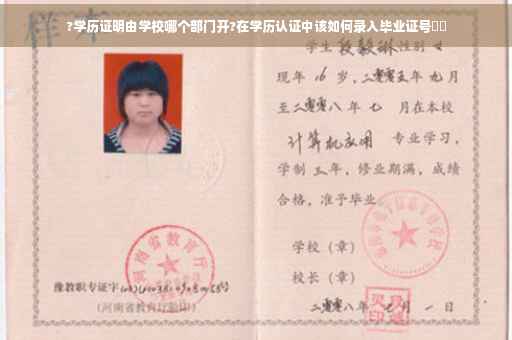 ?学历证明由学校哪个部门开?在学历认证中该如何录入毕业证号
样本
学生 段毅琳 性别 女
现年 16 岁，二零零五年 九月
至二零零八年 七 月在本校
计算机应用 专业学习，
学制 三年，修业期满，成绩
合格，准予毕业
学校（章）
校长（章）
二零零八年 七 月 一 日
河南省教育厅
豫教职专证字
（河南省教育厅验印）